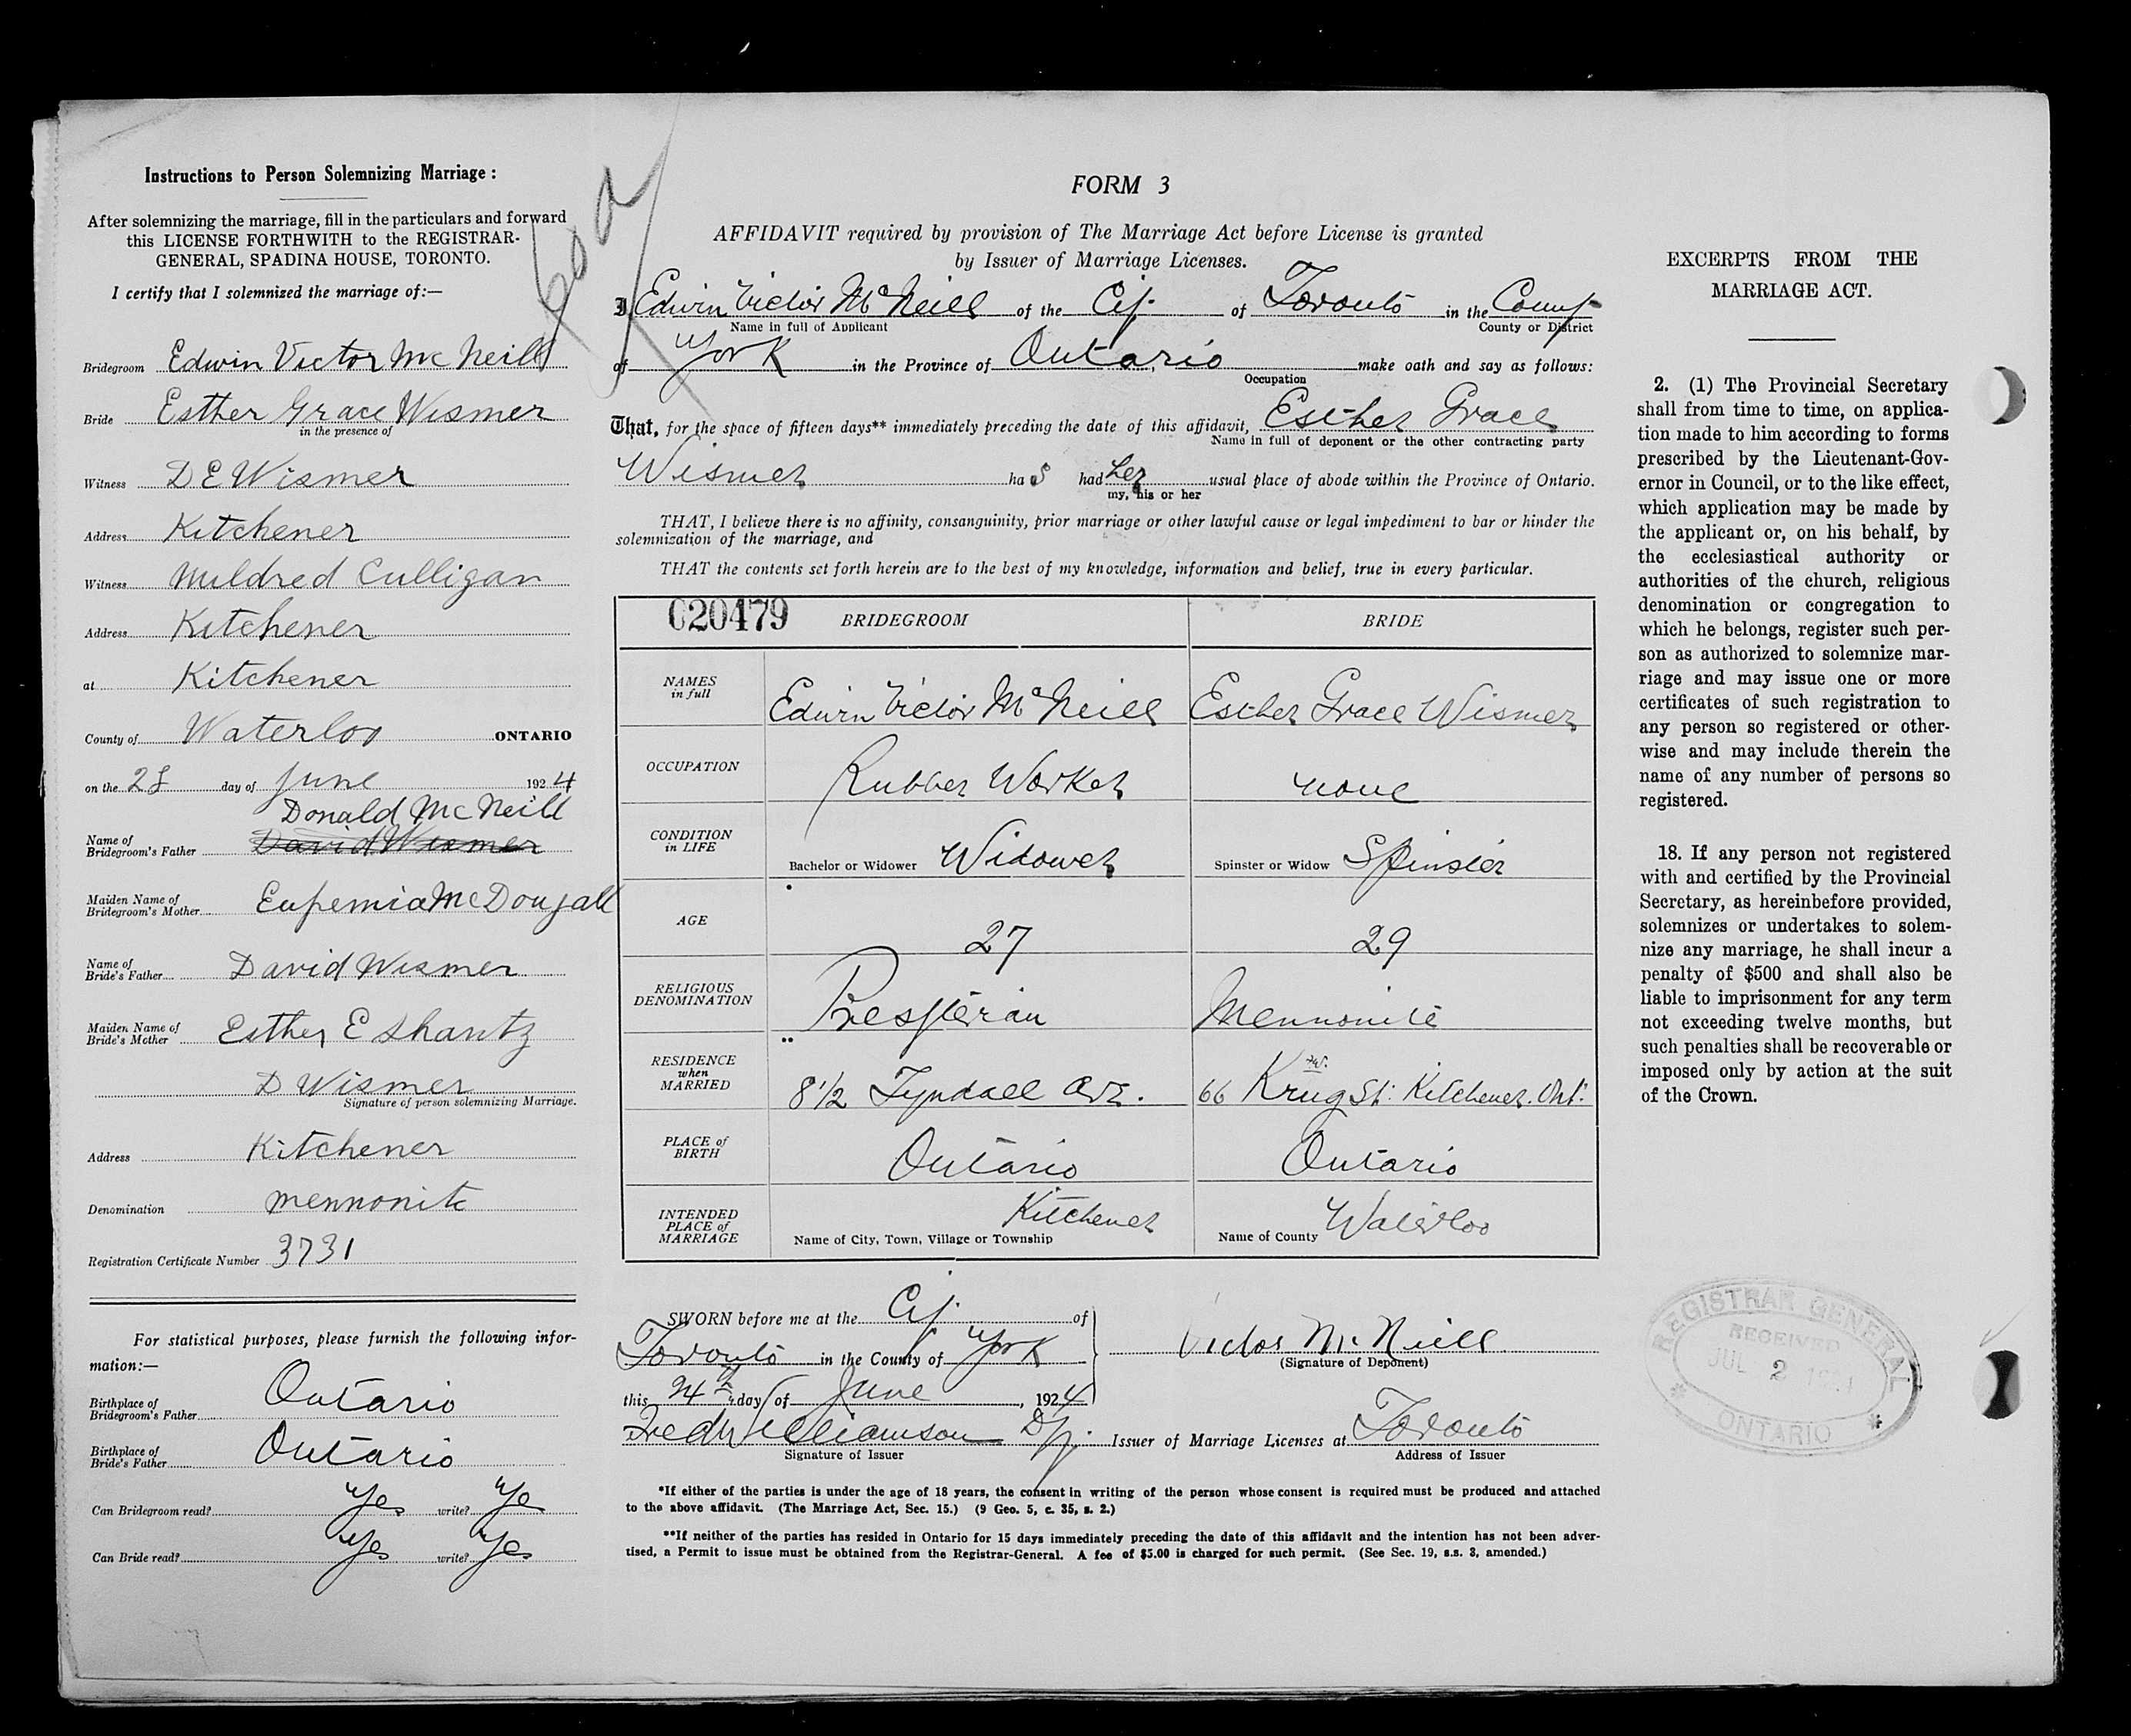 Instructions to Person Solemnizing Marriage :
After solemnizing the marriage, fill in the particulars and forward
this LICENSE FORTHWITH to the REGISTRAR-
GENERAL, SPADINA HOUSE, TORONTO.
I certify that I solemnized the marriage of:—
Bridegroom Edwin Victor McNeill
Bride Esther Grace Wismer
in the presence of
Witness D E Wismer
Address Kitchener
Witness Mildred Culligan
Address Kitchener
at Kitchener
County of Waterloo ONTARIO
on the 28 day of June 1924
Donald McNeill
Name of
Bridegroom's Father David Wismer
Maiden Name of
Bridegroom's Mother Eupemia McDougall
Name of
Bride's Father David Wismer
Maiden Name of
Bride's Mother Esther E Shantz
D Wismer
Signature of person solemnizing Marriage.
Address Kitchener
Denomination mennonite
Registration Certificate Number 3731
For statistical purposes, please furnish the following infor-
mation:—
Birthplace of
Bridegroom's Father Ontario
Birthplace of
Bride's Father Ontario
Can Bridegroom read? Yes write? Yes
Can Bride read? Yes write? Yes
FORM 3
AFFIDAVIT required by provision of The Marriage Act before License is granted
by Issuer of Marriage Licenses.
I Edwin Victor McNeill of the City of Toronto in the County
Name in full of Applicant County or District
of York in the Province of Ontario make oath and say as follows:
Occupation
That, for the space of fifteen days** immediately preceding the date of this affidavit, Esther Grace
Name in full of deponent or the other contracting party
Wismer ha s had her usual place of abode within the Province of Ontario.
my, his or her
THAT, I believe there is no affinity, consanguinity, prior marriage or other lawful cause or legal impediment to bar or hinder the
solemnization of the marriage, and
THAT the contents set forth herein are to the best of my knowledge, information and belief, true in every particular.
020479 BRIDEGROOM BRIDE
NAMES
in full Edwin Victor McNeill Esther Grace Wismer
OCCUPATION Rubber Worker none
CONDITION
in LIFE Bachelor or Widower Widower Spinster or Widow Spinster
AGE 27 29
RELIGIOUS
DENOMINATION Presyterian Mennonite
RESIDENCE
when
MARRIED 8 1/2 Tyndall Ave. 66 Krug St. Kitchener. Ont.
PLACE of
BIRTH Ontario Ontario
INTENDED
PLACE of
MARRIAGE Kitchener Waterloo
Name of City, Town, Village or Township Name of County
SWORN before me at the City of
Toronto in the County of York
Victor McNeill
(Signature of Deponent)
this 24th day of June, 1924
Fred Williamson Dp. Issuer of Marriage Licenses at Toronto
Signature of Issuer Address of Issuer
*If either of the parties is under the age of 18 years, the consent in writing of the person whose consent is required must be produced and attached
to the above affidavit. (The Marriage Act, Sec. 15.) (9 Geo. 5, c. 35, s. 2.)
**If neither of the parties has resided in Ontario for 15 days immediately preceding the date of this affidavit and the intention has not been adver-
tised, a Permit to issue must be obtained from the Registrar-General. A fee of $5.00 is charged for such permit. (See Sec. 19, s.s. 3, amended.)
EXCERPTS FROM THE
MARRIAGE ACT.
2. (1) The Provincial Secretary
shall from time to time, on applica-
tion made to him according to forms
prescribed by the Lieutenant-Gov-
ernor in Council, or to the like effect,
which application may be made by
the applicant or, on his behalf, by
the ecclesiastical authority or
authorities of the church, religious
denomination or congregation to
which he belongs, register such per-
son as authorized to solemnize mar-
riage and may issue one or more
certificates of such registration to
any person so registered or other-
wise and may include therein the
name of any number of persons so
registered.
18. If any person not registered
with and certified by the Provincial
Secretary, as hereinbefore provided,
solemnizes or undertakes to solem-
nize any marriage, he shall incur a
penalty of $500 and shall also be
liable to imprisonment for any term
not exceeding twelve months, but
such penalties shall be recoverable or
imposed only by action at the suit
of the Crown.
REGISTRAR GENERAL
RECEIVED
JUL 2 1924
ONTARIO